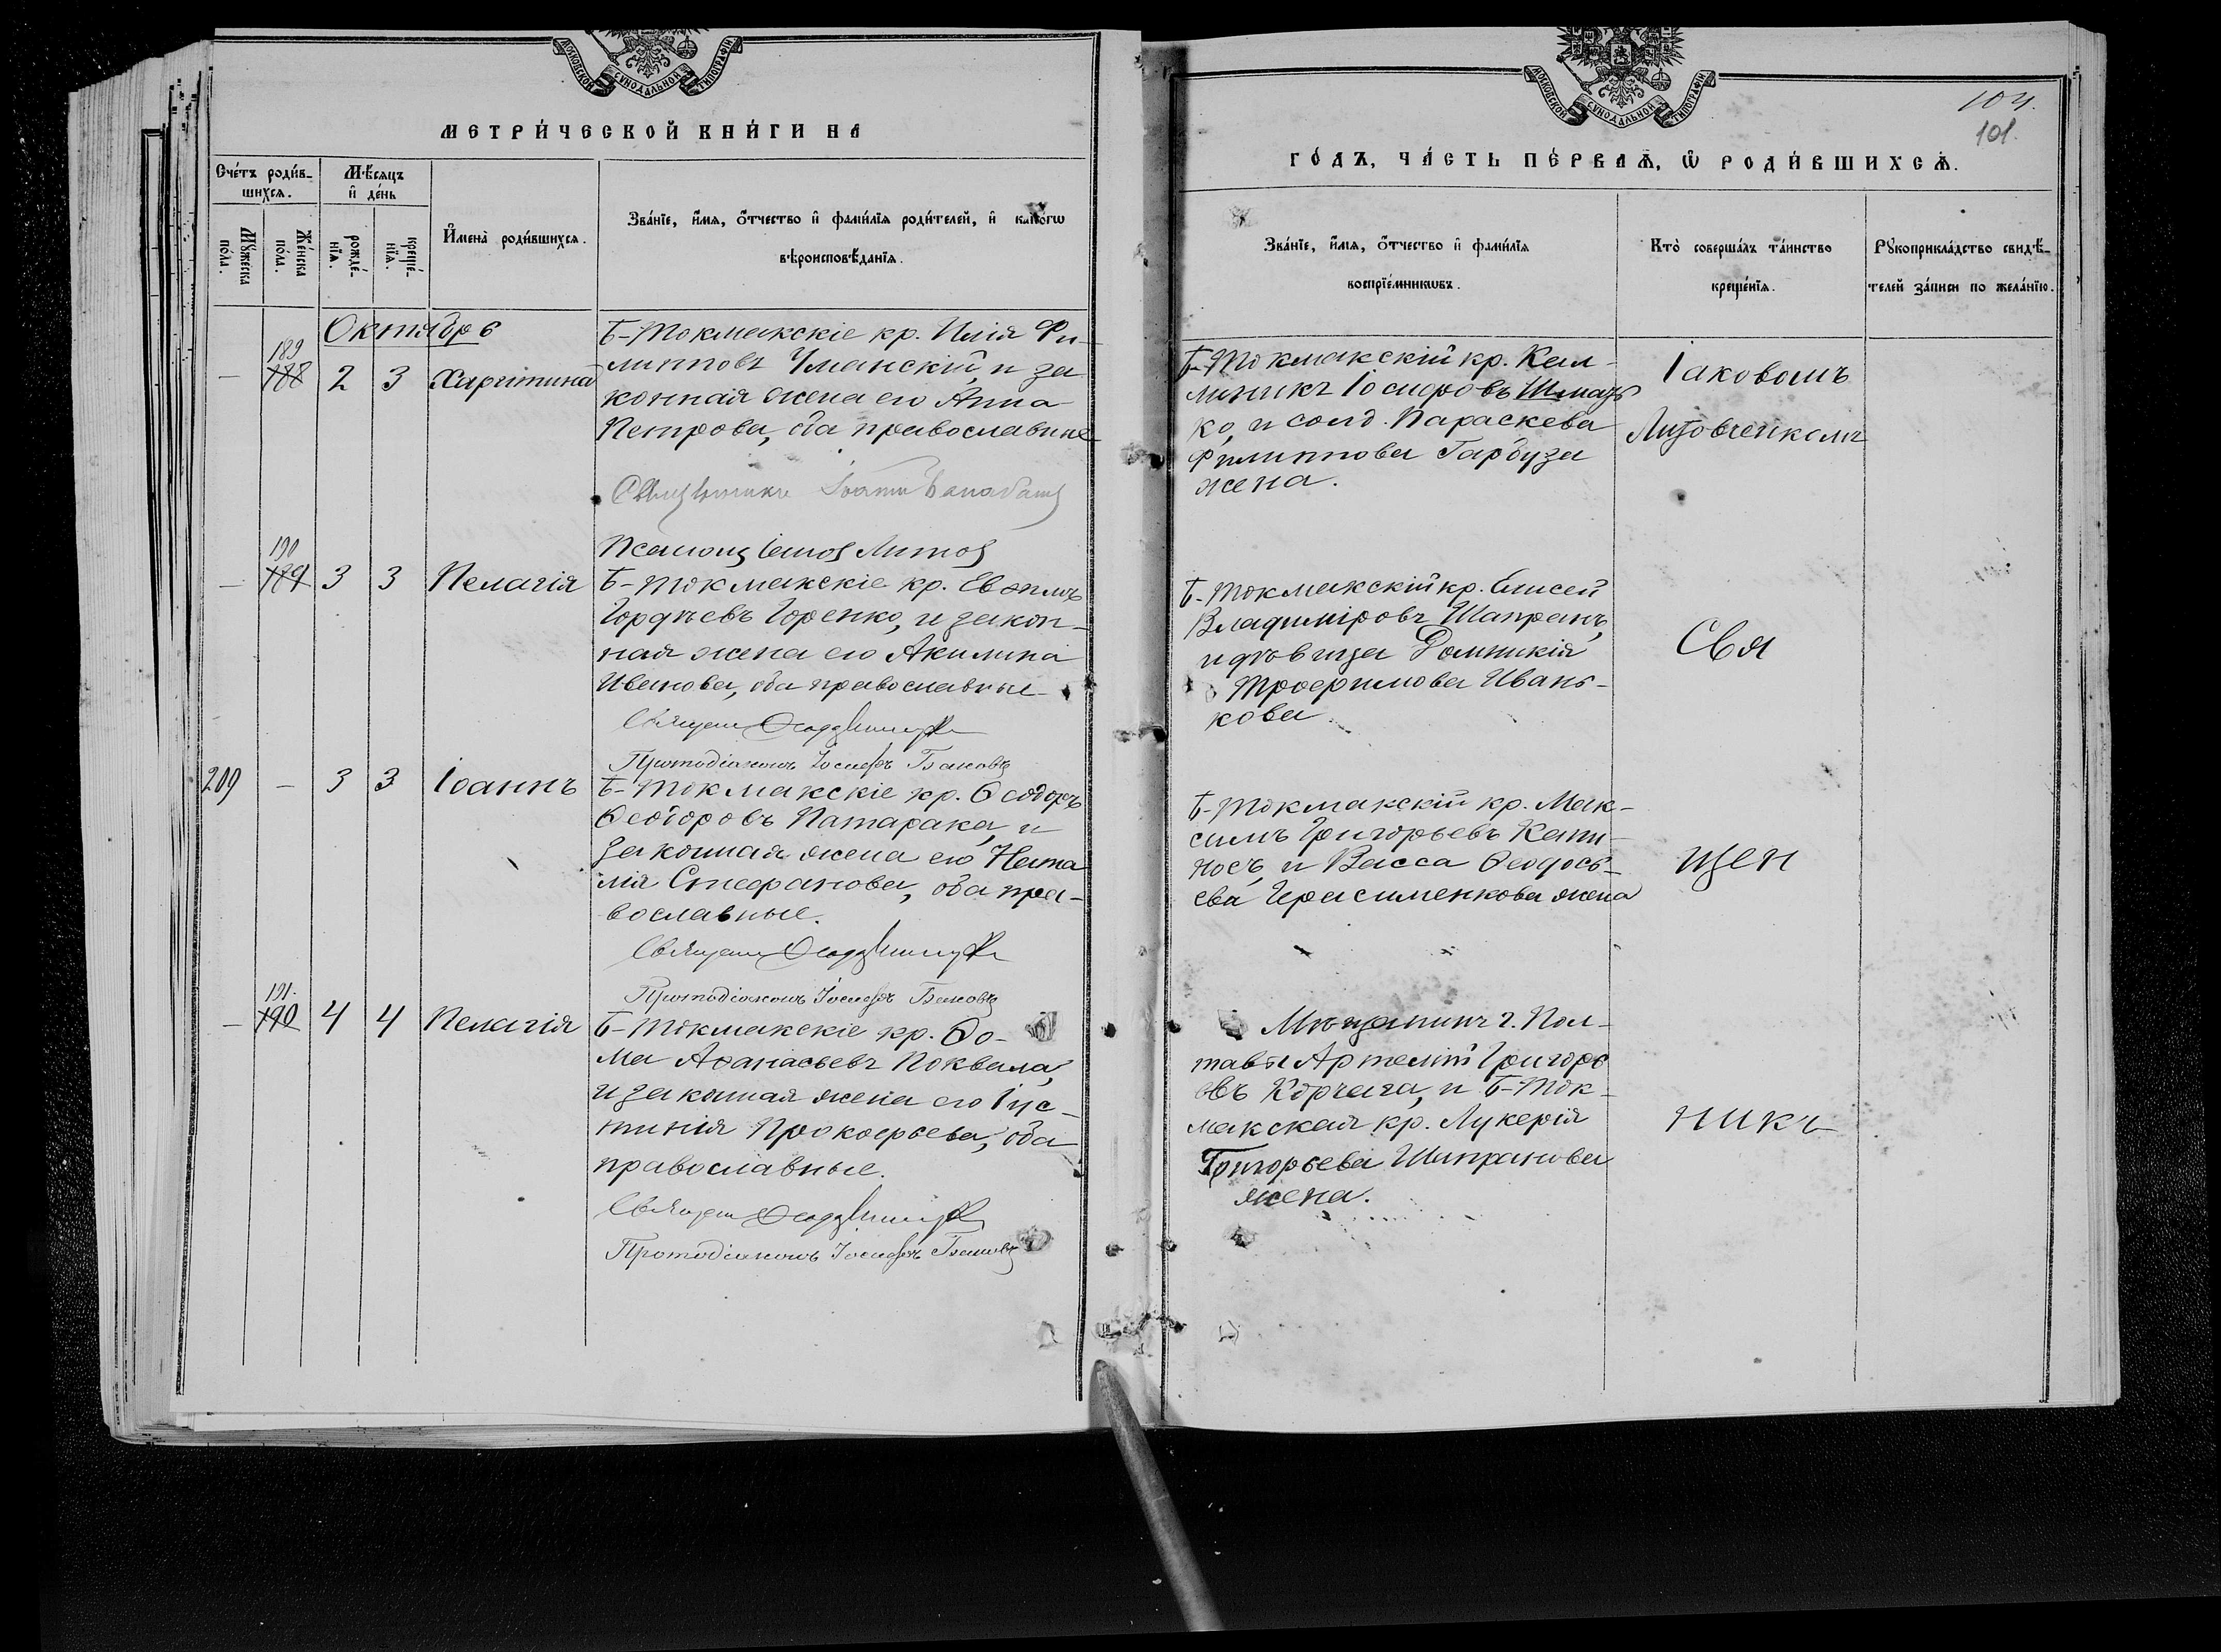 МОСКОВСКОЙ СУНОДАЛЬНОЙ ТИПОГРАФІИ
МЕТРИ́ЧЕСКОЙ КНИ́ГИ НА
Сче́тъ роди́в-
шихся.
Мѣ́сяцъ
и҆ де́нь
Мꙋ́жеска
по́ла.
Же́нска
по́ла.
рожде́-
нїѧ.
креще́-
нїѧ.
И҆мена̀ роди́вшихсѧ.
Зва́нїе, и҆́мѧ, ѻ҆́тчество и҆ фами́лїѧ роди́телей, и҆ како́гѡ
вѣроисповѣ́данїѧ.
Октябрь
189
188
— 2 3 Харитина
Б-Токмакскіе кр. Илія Фи-
липповъ Уманскій, и за
конная жена его Анна
Петрова, оба православные
Священникъ Іоаннъ
190
189
— 3 3 Пелагія
Б-Токмакскіе кр. Евѳимъ
Гордѣевъ Горенко, и закон-
ная жена его Акилина
Иванова, оба православные
Священ
Протодіаконъ Іосифъ Баковъ
209 — 3 3 Іоаннъ
Б-Токмакскіе кр. Ѳеодоръ
Ѳеодоровъ Патарака, и
законная жена его Ната
лія Стефанова, оба пра-
вославные.
Священ
Протодіаконъ Іосифъ Баковъ
191.
190
— 4 4 Пелагія
Б-Токмакскіе кр. Ѳо-
ма Аѳанасьевъ Поквала,
и законная жена его Іус-
тинія Прокофьева, оба
православные.
Священ
Протодіаконъ Іосифъ Баковъ
МОСКОВСКОЙ СУНОДАЛЬНОЙ ТИПОГРАФІИ
104.
101.
ГО́ДЪ, ЧА́СТЬ ПЕ́РВАѦ, Ѡ҆ РОДИ́ВШИХСѦ.
Зва́нїе, и҆́мѧ, ѻ҆́тчество и҆ фами́лїѧ
воспрїе́мникѡвъ.
Кто̀ соверша́лъ та́инство
креще́нїѧ.
Рꙋкоприкла́дство свидѣ́-
телей за́писи по жела́нїю.
Б-Токмакскій кр. Кал-
линикъ Іосифовъ Шмать
ко, и солд. Параскева
Филиппова Гарбуза
жена.
Іаковомъ
Литовченкомъ
Б-Токмакскій кр. Елисей
Владиміровъ Шапранъ,
и дѣвица Домникія
Трофимова Ивань-
кова
Свя
Б-Токмакскій кр. Мак-
симъ Григорьевъ
и Васса Ѳеодось-
ева Герасименкова жена
щен
Мѣщанинъ г. Пол-
тавы Артемій Григорь
евъ Корчага, и Б-Ток-
макская кр. Лукерія
Григорьева Шапранова
жена.
никъ